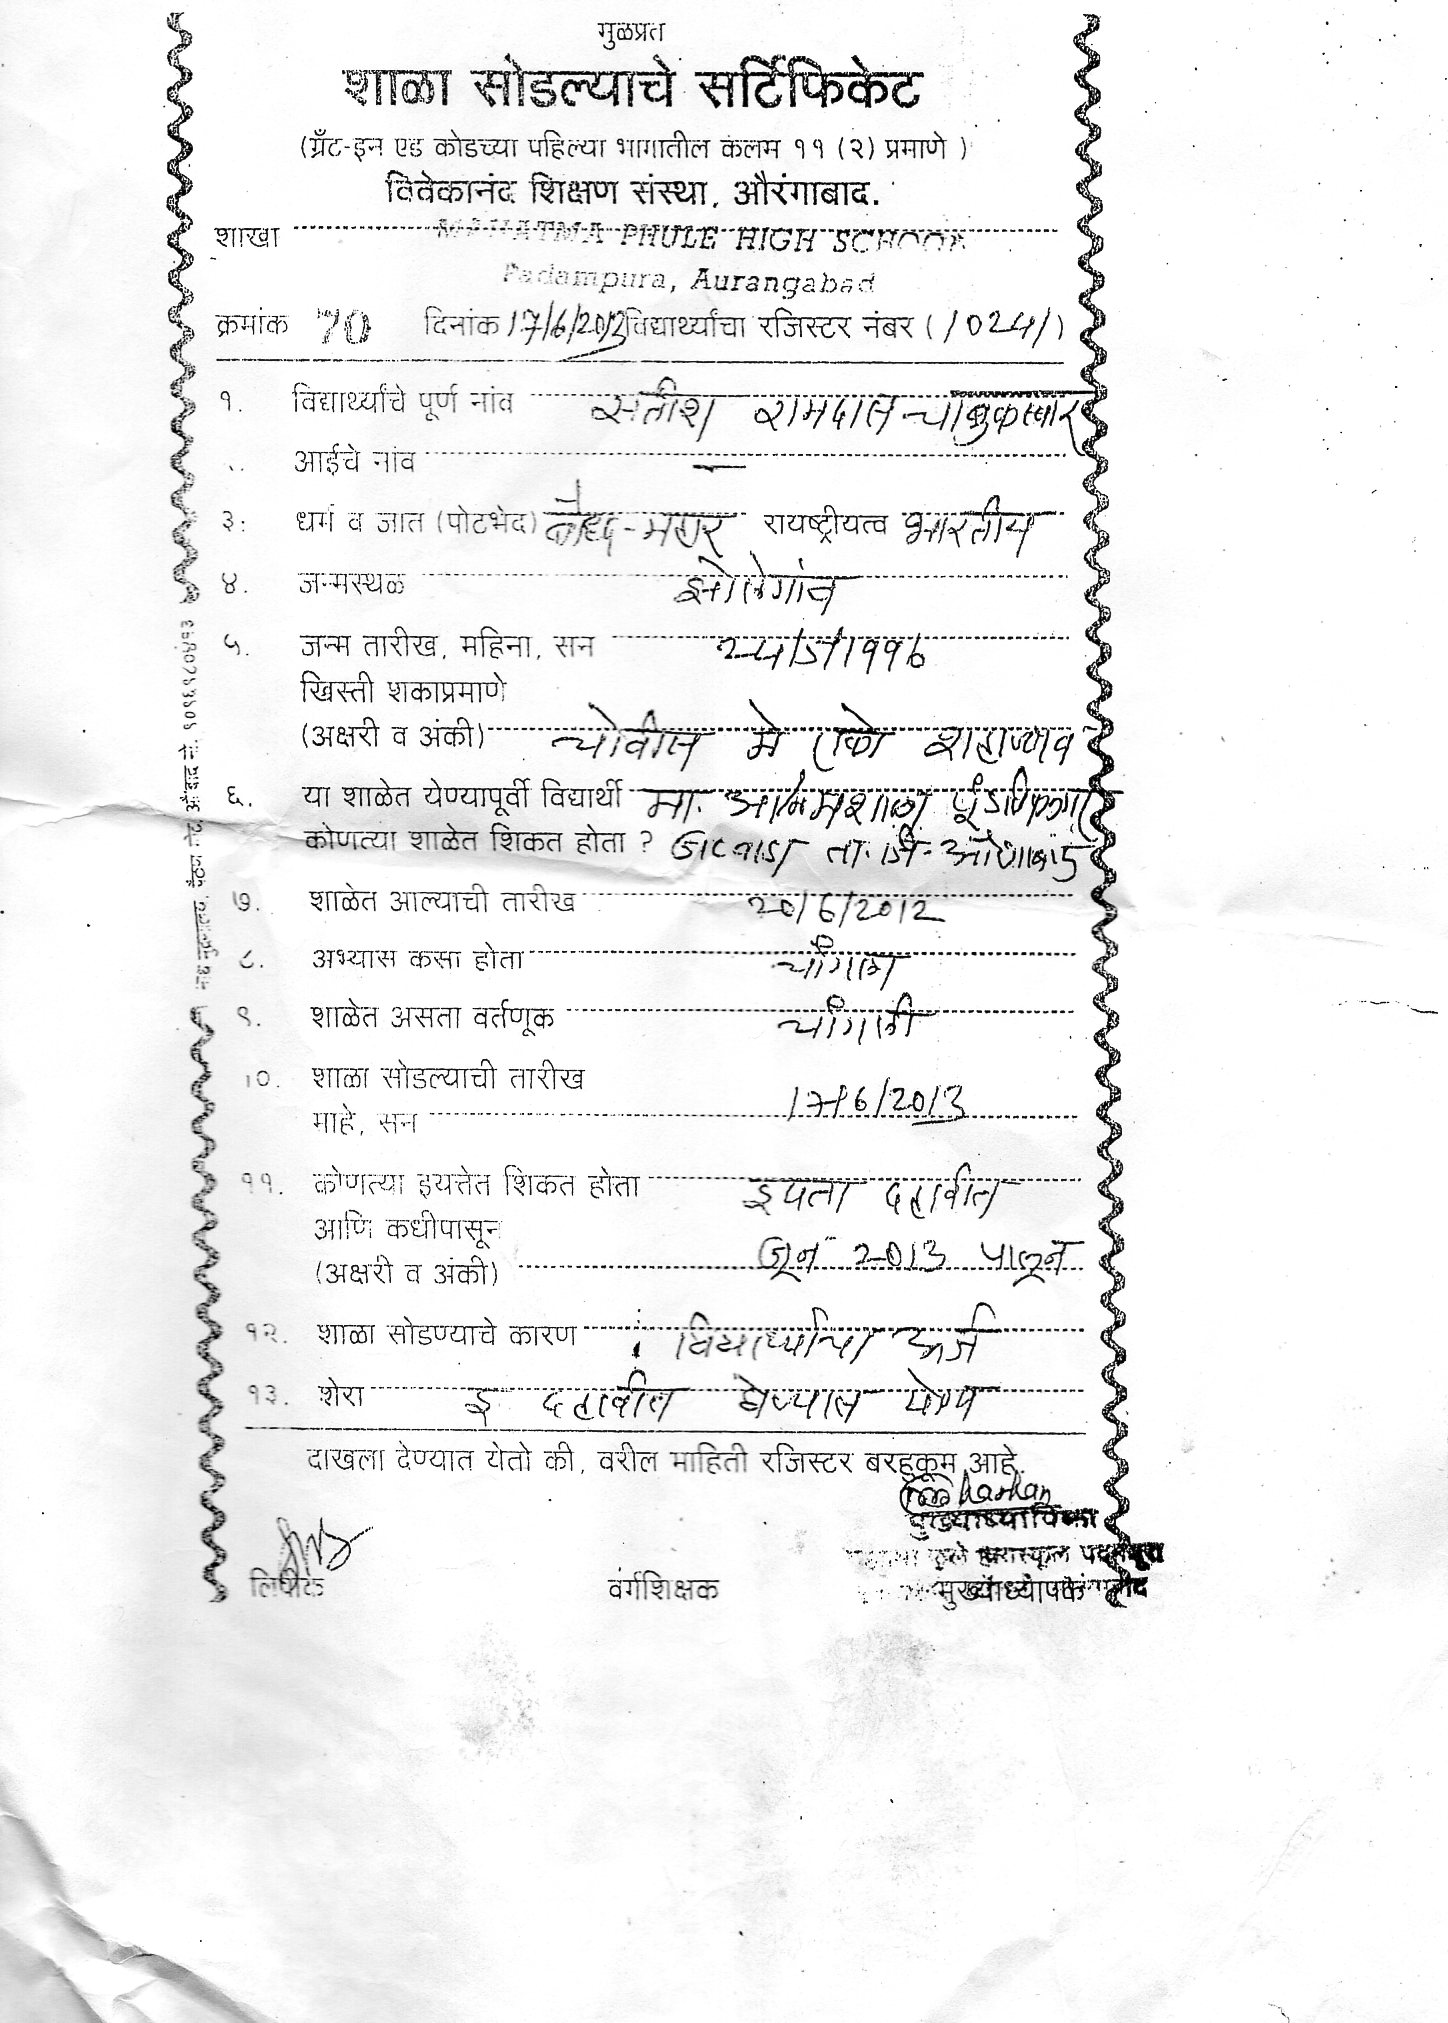 मुळप्रत
शाळा सोडल्याचे सर्टिफिकेट
(ग्रँट-इन एड कोडच्या पहिल्या भागातील कलम ११ (२) प्रमाणे )
विवेकानंद शिक्षण संस्था, औरंगाबाद.
शाखा MAHATMA PHULE HIGH SCHOOL
Padampura, Aurangabad
क्रमांक 70 दिनांक 17/6/2013 विद्यार्थ्यांचा रजिस्टर नंबर (10241)
१. विद्यार्थ्यांचे पूर्ण नांव सतीश रामदास चाबुकस्वार
आईचे नांव —
३. धर्म व जात (पोटभेद) बौध्द-महार रायष्ट्रीयत्व भारतीय
४. जन्मस्थळ
५. जन्म तारीख, महिना, सन २४/५/१९९६
खिस्ती शकाप्रमाणे
(अक्षरी व अंकी) चोवीस मे शहाण्णव
६. या शाळेत येण्यापूर्वी विद्यार्थी मा. आश्रमशाळा
कोणत्या शाळेत शिकत होता ? ता. जि. औरंगाबाद
७. शाळेत आल्याची तारीख 20/6/2012
८. अभ्यास कसा होता चांगला
९. शाळेत असता वर्तणूक चांगली
१०. शाळा सोडल्याची तारीख
माहे, सन 17/6/2013
११. कोणत्या इयत्तेत शिकत होता इयता दहावीत
आणि कधीपासून
(अक्षरी व अंकी) जून 2013 पासून
१२. शाळा सोडण्याचे कारण : विद्यार्थ्याचा अर्ज
१३. शेरा इ दहावीत बसण्यास योग्य
दाखला देण्यात येतो की, वरील माहिती रजिस्टर बरहुकूम आहे.
मुख्याध्यापिका
लिपीक वर्गशिक्षक मुख्याध्यापक